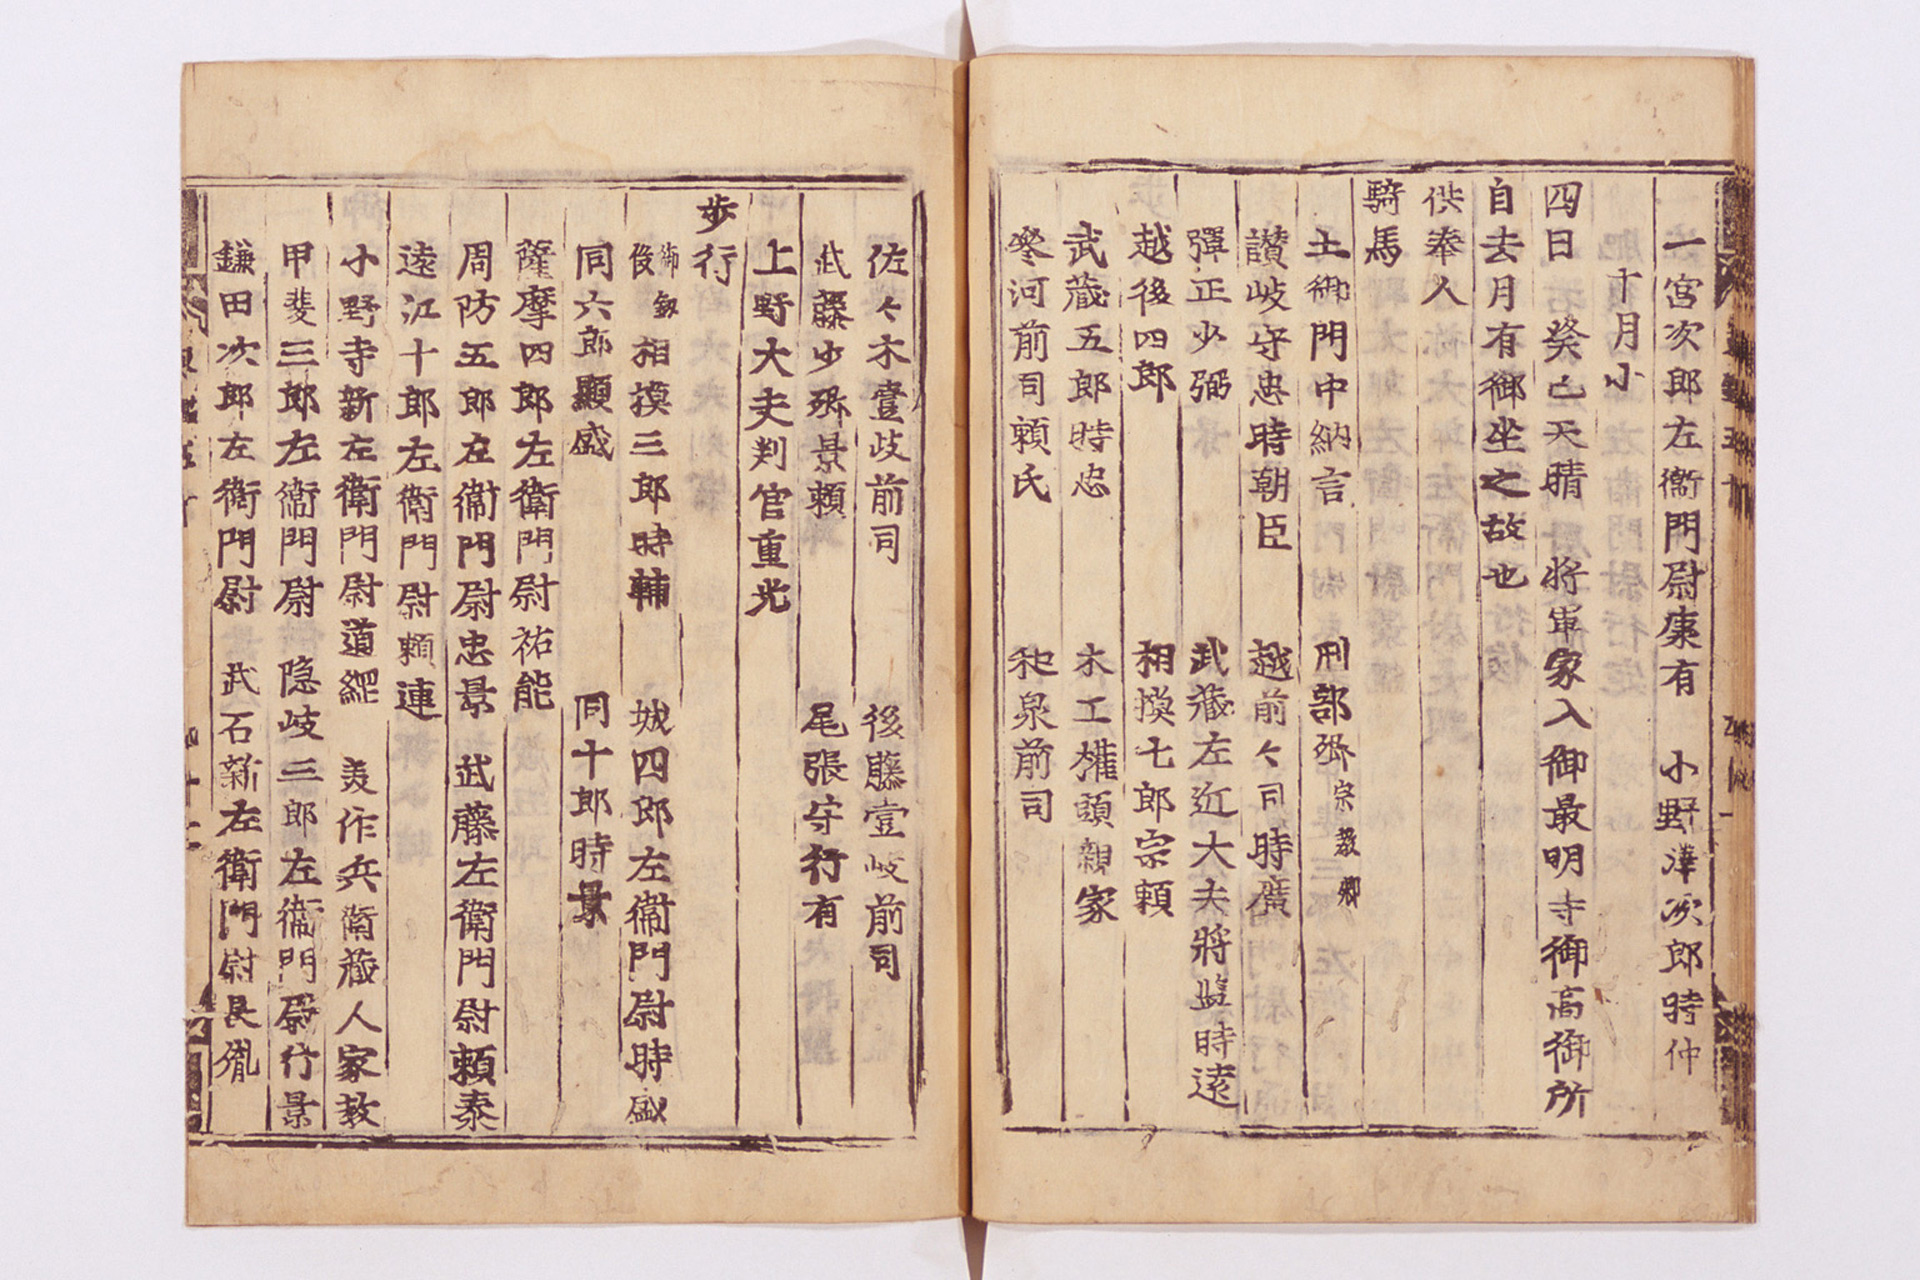 一宮次郎左衞門尉康有　小野澤次郎時仲
十月小
四日　癸巳天晴　將軍家入御最明寺御高御所
自去月有御坐之故也
供奉人
騎馬
土御門中納言　刑部卿宗教卿
讃岐守忠時朝臣　越前々司時廣
彈正少弼　武藏左近大夫將監時遠
越後四郎　相摸七郎宗頼
武藏五郎時忠　木工權頭親家
叅河前司頼氏　和泉前司
佐々木壹岐前司　後藤壹岐前司
武藤少卿景頼　尾張守行有
上野大夫判官重光
歩行
御劔役　相摸三郎時輔　城四郎左衞門尉時盛
同六郎顯盛　同十郎時景
薩摩四郎左衞門尉祐能
周防五郎左衞門尉忠景　武藤左衞門尉頼泰
遠江十郎左衞門尉頼連
小野寺新左衞門尉道經　美作兵衞藏人家教
甲斐三郎左衞門尉　隠岐三郎左衞門尉行景
鎌田次郎左衞門尉　武石新左衞門尉長胤